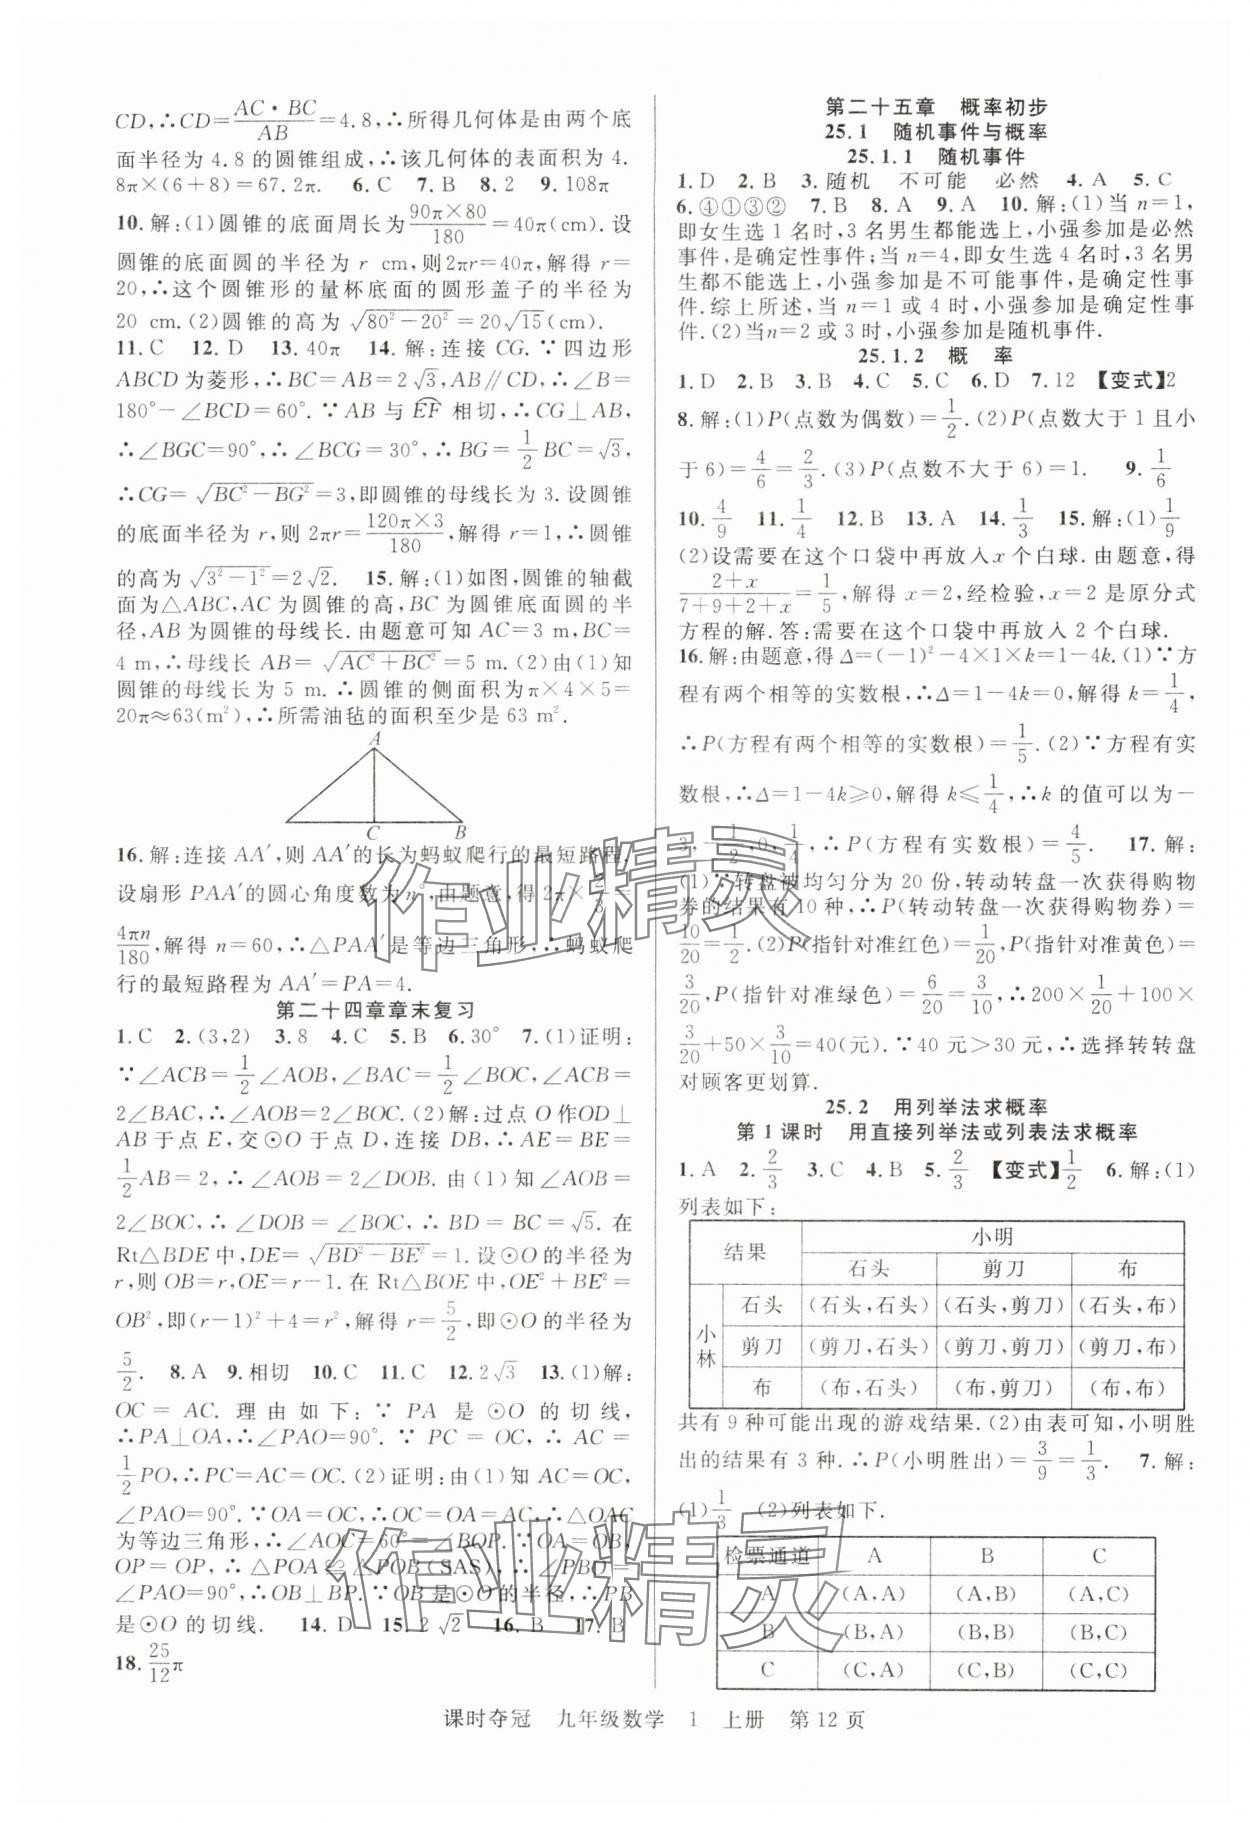 CD,∴CD=AC·BC/AB=4.8,∴所得几何体是由两个底
面半径为 4.8 的圆锥组成,∴该几何体的表面积为 4.
8π×(6+8)=67.2π. 6.C 7.B 8.2 9.108π
10.解:(1)圆锥的底面周长为90π×80/180=40π(cm).设
圆锥的底面圆的半径为 r cm,则2πr=40π,解得 r=
20,∴这个圆锥形的量杯底面的圆形盖子的半径为
20 cm.(2)圆锥的高为 √(80²-20²)=20√15(cm).
11.C 12.D 13.40π 14.解:连接 CG.∵四边形
ABCD 为菱形,∴BC=AB=2√3,AB∥CD,∴∠B=
180°-∠BCD=60°.∵AB 与 EF 相切,∴CG⊥AB,
∴∠BGC=90°,∴∠BCG=30°,∴BG=1/2BC=√3,
∴CG=√(BC²-BG²)=3,即圆锥的母线长为 3.设圆锥
的底面半径为 r,则 2πr=120π×3/180,解得 r=1,∴圆锥
的高为√(3²-1²)=2√2. 15.解:(1)如图,圆锥的轴截
面为△ABC,AC 为圆锥的高,BC 为圆锥底面圆的半
径,AB 为圆锥的母线长.由题意可知 AC=3 m,BC=
4 m,∴母线长 AB=√(AC²+BC²)=5 m.(2)由(1)知
圆锥的母线长为 5 m.∴圆锥的侧面积为π×4×5=
20π≈63(m²),∴所需油毡的面积至少是 63 m².
A
C B
16.解:连接 AA′,则 AA′的长为蚂蚁爬行的最短路程.
设扇形 PAA′的圆心角度数为 n°,由题意,得 2π×2/3=
4πn/180,解得 n=60,∴△PAA′是等边三角形,∴蚂蚁爬
行的最短路程为 AA′=PA=4.
第二十四章章末复习
1.C 2.(3,2) 3.8 4.C 5.B 6.30° 7.(1)证明:
∵∠ACB=1/2∠AOB,∠BAC=1/2∠BOC,∠ACB=
2∠BAC,∴∠AOB=2∠BOC.(2)解:过点 O 作OD⊥
AB 于点 E,交⊙O 于点 D,连接 DB,∴AE=BE=
1/2AB=2,∴∠DOB=1/2∠AOB.由(1)知∠AOB=
2∠BOC,∴∠DOB=∠BOC,∴BD=BC=√5.在
Rt△BDE 中,DE=√(BD²-BE²)=1.设⊙O 的半径为
r,则 OB=r,OE=r-1.在 Rt△BOE 中,OE²+BE²=
OB²,即(r-1)²+4=r²,解得 r=5/2,即⊙O 的半径为
5/2. 8.A 9.相切 10.C 11.C 12.2√3 13.(1)解:
OC=AC.理由如下:∵PA 是⊙O 的切线,
∴PA⊥OA,∴∠PAO=90°.∵PC=OC,∴AC=
1/2PO,∴PC=AC=OC.(2)证明:由(1)知∠APO=30°,
∠PAO=90°.∵OA=OC,∴OC=OA=AC,∴△OAC
为等边三角形,∴∠AOC=60°=∠BOP.∵OA=OB,
OP=OP,∴△POA≌△POB(SAS),∴∠PBO=
∠PAO=90°,∴OB⊥BP.∵OB 是⊙O 的半径,∴PB
是⊙O 的切线. 14.D 15.2√2 16.B 17.B
18.25/12π
第二十五章 概率初步
25.1 随机事件与概率
25.1.1 随机事件
1.D 2.B 3.随机 不可能 必然 4.A 5.C
6.④①③② 7.B 8.A 9.A 10.解:(1)当 n=1,
即女生选 1 名时,3 名男生都能选上,小强参加是必然
事件,是确定性事件;当 n=4,即女生选 4 名时,3 名男
生都不能选上,小强参加是不可能事件,是确定性事
件.综上所述,当 n=1 或 4 时,小强参加是确定性事
件.(2)当n=2 或 3 时,小强参加是随机事件.
25.1.2 概 率
1.D 2.B 3.B 4.C 5.C 6.D 7.12 【变式】2
8.解:(1)P(点数为偶数)=1/2.(2)P(点数大于 1 且小
于 6)=4/6=2/3.(3)P(点数不大于 6)=1. 9.1/6
10.4/9 11.1/4 12.B 13.A 14.1/3 15.解:(1)1/9
(2)设需要在这个口袋中再放入 x 个白球.由题意,得
(2+x)/(7+9+2+x)=1/5,解得 x=2,经检验,x=2 是原分式
方程的解.答:需要在这个口袋中再放入 2 个白球.
16.解:由题意,得 Δ=(-1)²-4×1×k=1-4k.(1)∵方
程有两个相等的实数根,∴Δ=1-4k=0,解得 k=1/4,
∴P(方程有两个相等的实数根)=1/5.(2)∵方程有实
数根,∴Δ=1-4k≥0,解得 k≤1/4,∴k 的值可以为-
3,-1/2,0,1/4,∴P(方程有实数根)=4/5. 17.解:
(1)∵转盘被均匀分为 20 份,转动转盘一次获得购物
券的结果有 10 种,∴P(转动转盘一次获得购物券)=
10/20=1/2.(2)P(指针对准红色)=1/20,P(指针对准黄色)=
3/20,P(指针对准绿色)=6/20=3/10,∴200×1/20+100×
3/20+50×3/10=40(元).∵40 元>30 元,∴选择转转盘
对顾客更划算.
25.2 用列举法求概率
第 1 课时 用直接列举法或列表法求概率
1.A 2.2/3 3.C 4.B 5.2/3 【变式】1/2 6.解:(1)
列表如下:
结果 小明
石头 剪刀 布
小林 石头 (石头,石头) (石头,剪刀) (石头,布)
剪刀 (剪刀,石头) (剪刀,剪刀) (剪刀,布)
布 (布,石头) (布,剪刀) (布,布)
共有 9 种可能出现的游戏结果.(2)由表可知,小明胜
出的结果有 3 种.∴P(小明胜出)=3/9=1/3. 7.解:
(1)1/3 (2)列表如下.
检票通道 A B C
A (A,A) (A,B) (A,C)
B (B,A) (B,B) (B,C)
C (C,A) (C,B) (C,C)
课时夺冠 九年级数学 1 上册 第 12 页
作业精灵
作业精灵